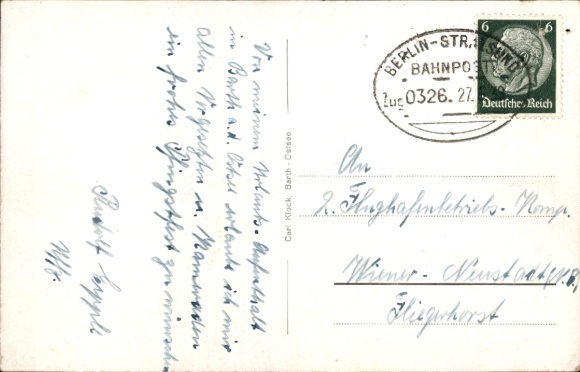 Von meinem Urlaubs-Aufenthalt
in Barth a.d. Ostsee erlaube ich mir
allen Vorgesetzten u. Kameraden
ein frohes Pfingstfest zu wünschen
Rudolf
Uffz.
Carl Klock, Barth - Ostsee
BERLIN-STR.
BAHNPOST
Zug 0326. 27.
6 6
Deutsches Reich
An
2. Flughafenbetriebs-Komp.
Wiener-Neustadt
Fliegerhorst